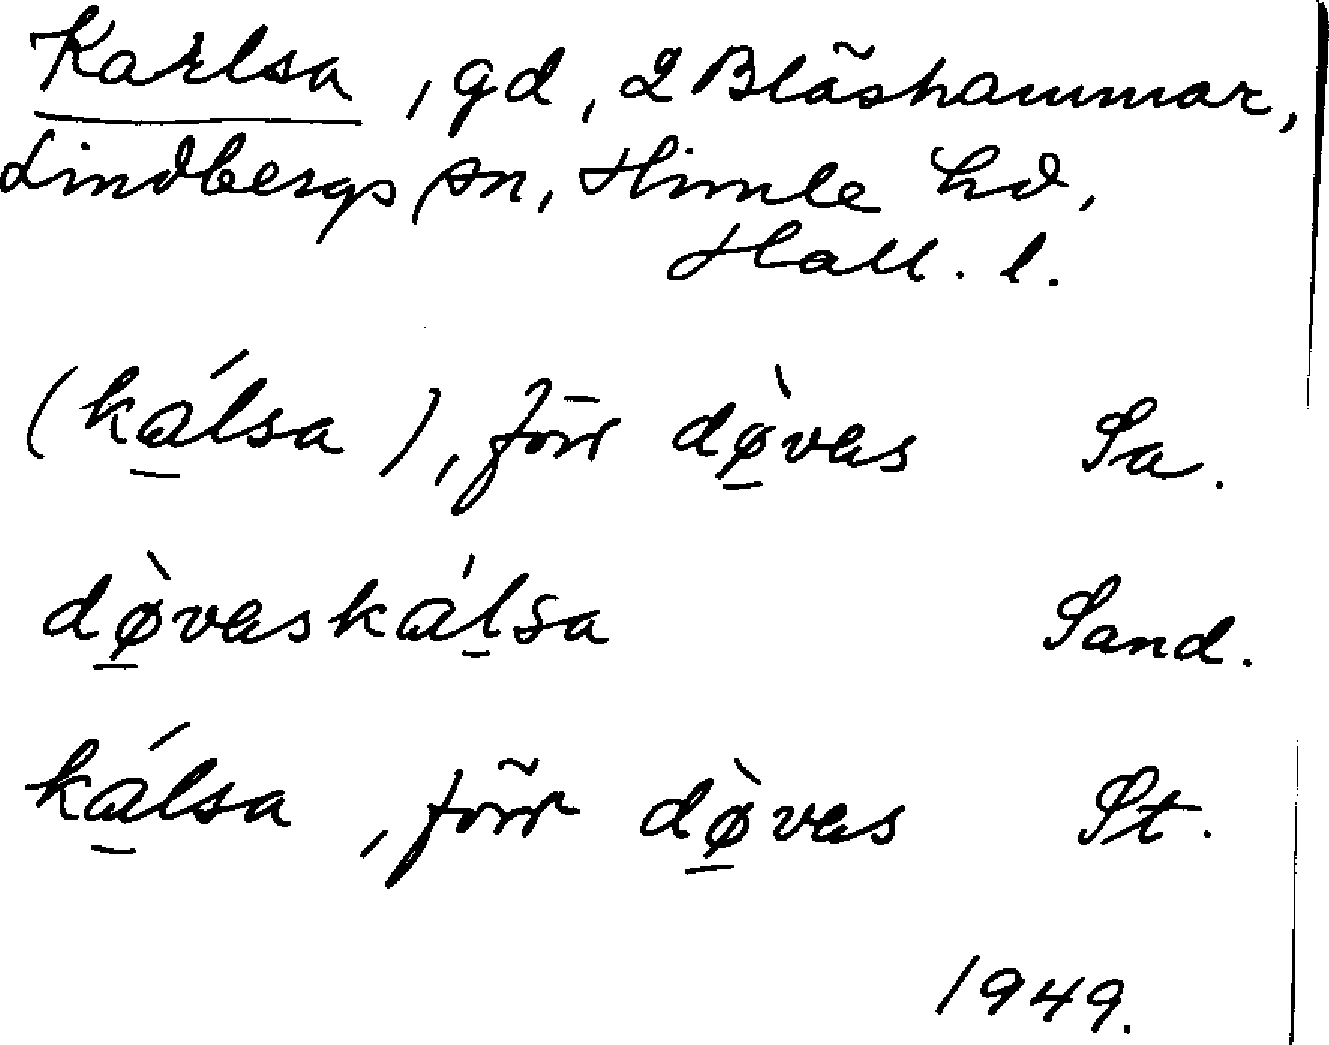 Karlsa, gd, 2 Blåshammar,
Lindbergs sn, Himle hd,
Hall. l.
(ká̱lsa), förr dø̱̀vas Sa.
dø̱̀vaskáḻsa Sand.
ká̱lsa, förr dø̱̀vas St.
1949.